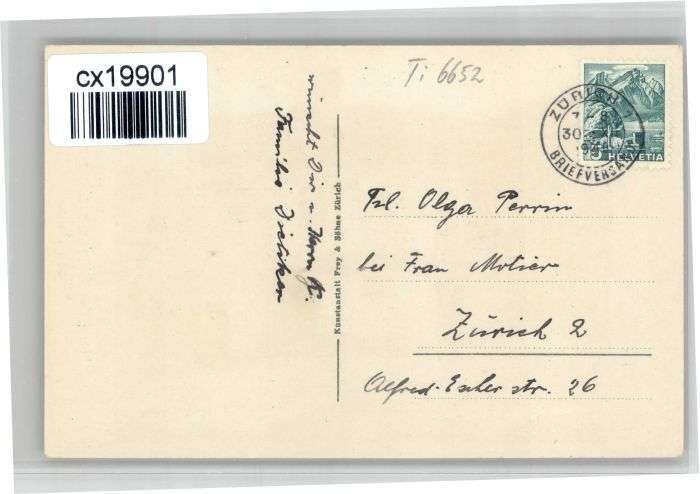 cx19901
Ti 6652
ZÜRICH 1
30
BRIEFVERSAND
5 HELVETIA
wünscht Dir u. Herrn K.
Familie Dietiker
Kunstanstalt Frey & Söhne Zürich
Frl. Olga Perrin
bei Frau Motier
Zürich 2
Alfred-Escher str. 26